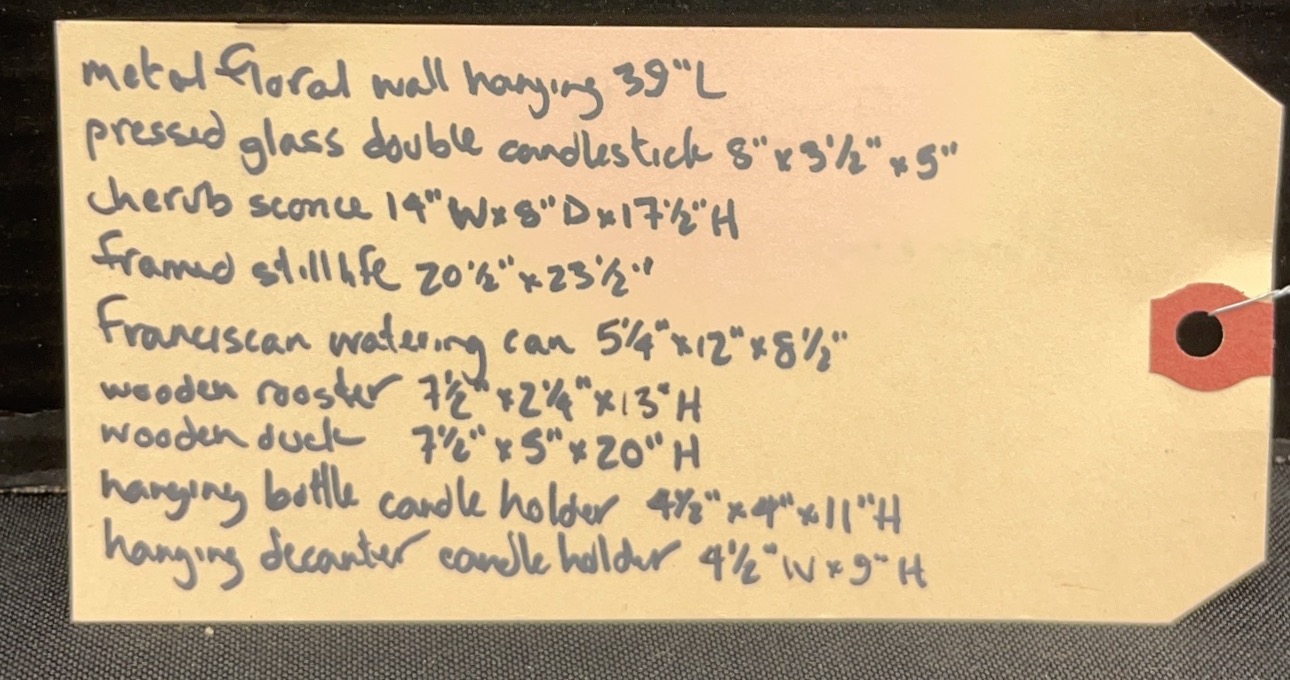 metal floral wall hanging 39"L
pressed glass double candlestick 8" x 3 1/2" x 5"
cherub sconce 14" W x 8" D x 17 1/2" H
framed still life 20 1/2" x 23 1/2"
Franciscan watering can 5 1/4" x 12" x 8 1/2"
wooden rooster 7 1/2" x 2 1/4" x 13" H
wooden duck 7 1/2" x 5" x 20" H
hanging bottle candle holder 4 1/2" x 4" x 11" H
hanging decanter candle holder 4 1/2" W x 9" H